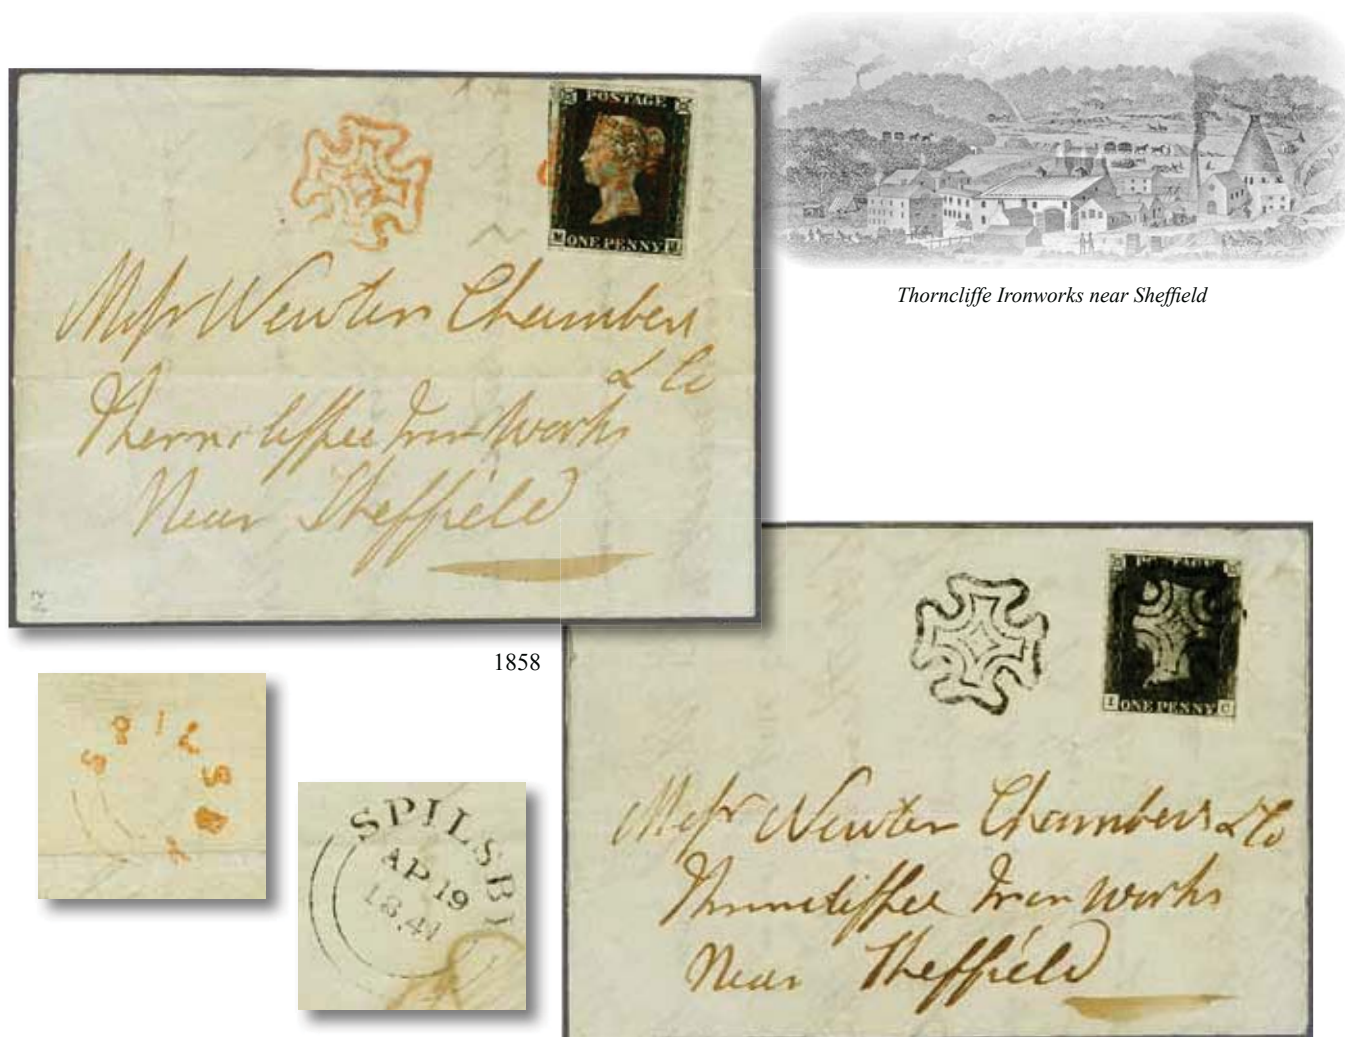 POSTAGE
ONE PENNY
Messr Newton Chambers
& Co
Thorncliffee Iron Works
Near Sheffield
Thorncliffe Ironworks near Sheffield
1858
SPILSBY
SPILSBY
AP 19
1841
POSTAGE
I ONE PENNY C
Messr Newton Chambers & Co
Thorncliffee Iron Works
Near Sheffield